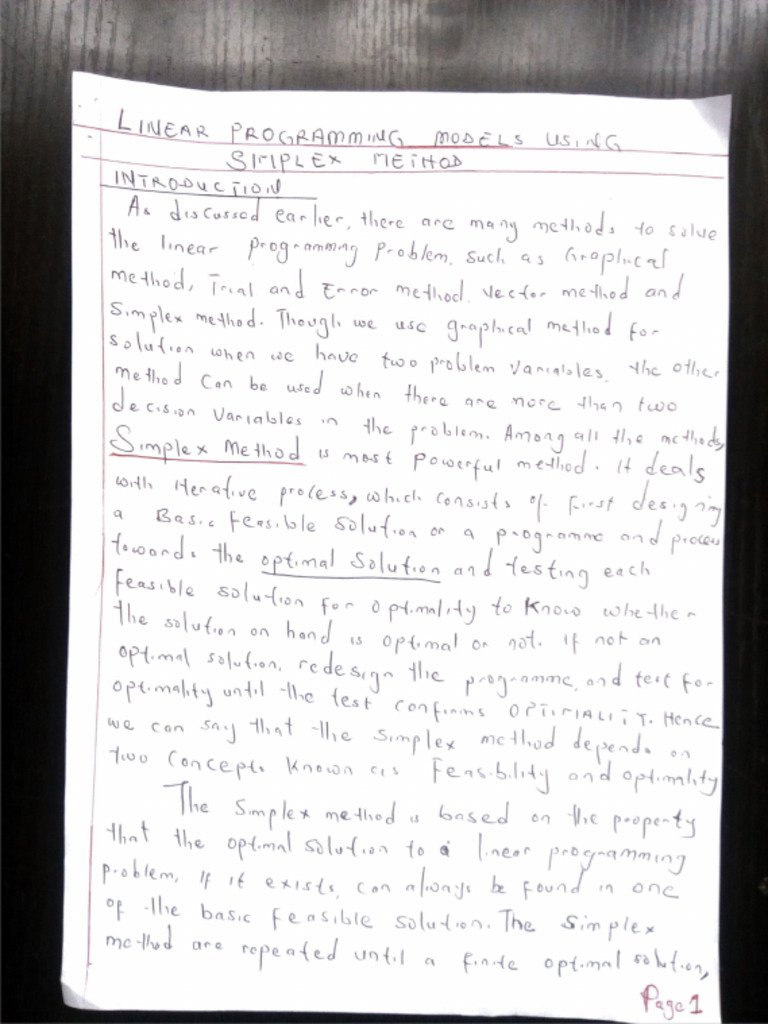 LINEAR PROGRAMMING MODELS USING
SIMPLEX METHOD
INTRODUCTION
As discussed earlier, there are many methods to solve
the linear programming problem, such as Graphical
method, Trial and Error method, Vector method and
Simplex method. Though we use graphical method for
solution when we have two problem variables, the other
method can be used when there are more than two
decision variables in the problem. Among all the methods,
Simplex Method is most powerful method. It deals
with iterative process, which consists of first designing
a Basic Feasible Solution or a programme and proceed
towards the optimal Solution and testing each
feasible solution for optimality to know whether
the solution on hand is optimal or not. If not an
optimal solution, redesign the programme, and test for
optimality until the test confirms OPTIMALITY. Hence
we can say that the simplex method depends on
two concepts known as Feasibility and optimality
The Simplex method is based on the property
that the optimal solution to a linear programming
problem, if it exists, can always be found in one
of the basic feasible solution. The simplex
method are repeated until a finite optimal solution,
Page 1